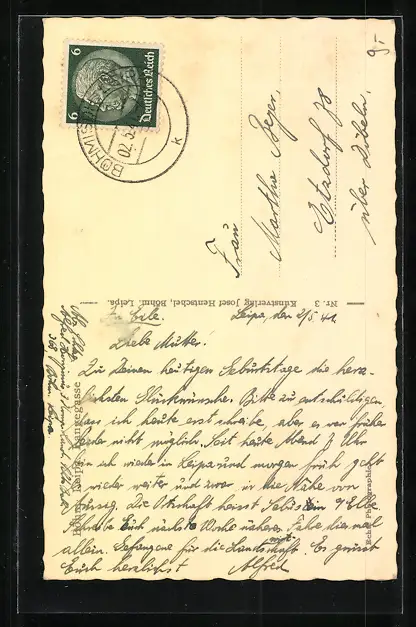 9,-
6 6
Deutsches Reich
BÖHMISCH
02.5.
k
Frau
Martha Beyer,
Etzdorf 78
über Döbeln.
Nr. 3 Kunstverlag Josef Hentschel, Böhm. Leipa.
In Eile.
Leipa, den 2/5 41.
Liebe Mutter!
Zu Deinem heutigen Geburtstage die herz-
lichsten Glückwünsche. Bitte zu entschuldigen,
dass ich heute erst schreibe, aber es war früher
leider nicht möglich. Seit heute Abend 7 Uhr
bin ich wieder in Leipa und morgen früh geht
es wieder weiter und zwar in die Nähe von
Aussig. Die Ortschaft heisst
Schreibe Euch nächste Woche näheres. Fahre diesmal
allein. Gefangene für die Landwirtschaft. Es grüsst
Euch herzlichst Alfred
Böhm. Leipa, Langegasse
Echte Photographie